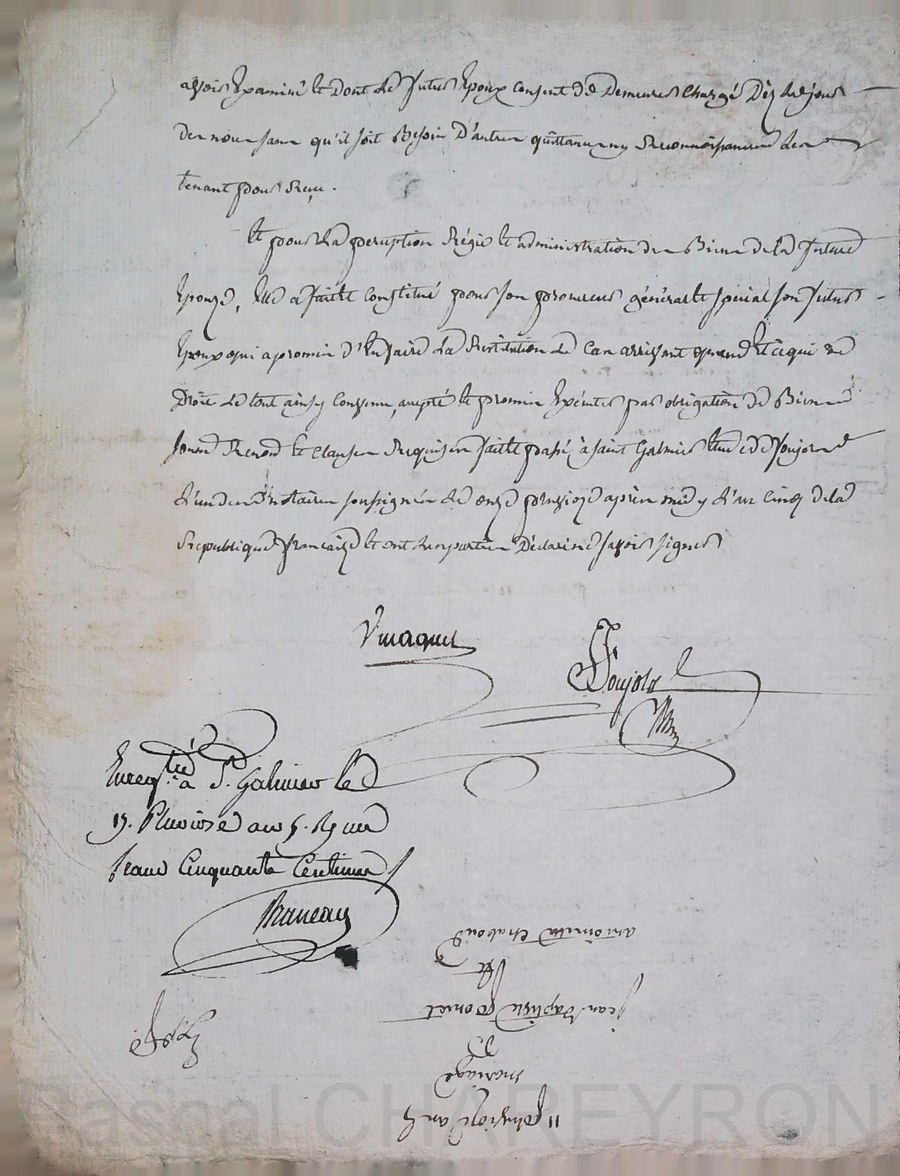 avoir Examiné et dont le futur Epoux consent de Demeurer chargé Dèz le jour
des noces sans qu'il soit Besoin D'autres quittances ny Reconnoissances les
tenant pour Reçu.
Et pour la perception Régie et administration des Biens de la future
Epouze, Elle a faitte Constitué pour son procureur général et spécial son futur
Epoux qui a promis d'En faire la Restitution le cas arrivant quand Et à qui de
Droit Le tout ainsy Convenu, accepté et promis Exécuter par obligation de Biens
Renon et Clauses Requises faitte passé à saint Galmier Etude de Poujol
L'un des notaires soussignés le onze pluvioze après midy L'an Cinq de la
Republique francaize et ont les parties Déclaré savoir signer
Poujol
Enregtré à St. Galmier le
Pluviose an 5. Reçu
franc Cinquante Centimes
11 pluvioze an 5
mariage
de
jean baptiste
et
antoinette chaboud
Pascal CHAREYRON